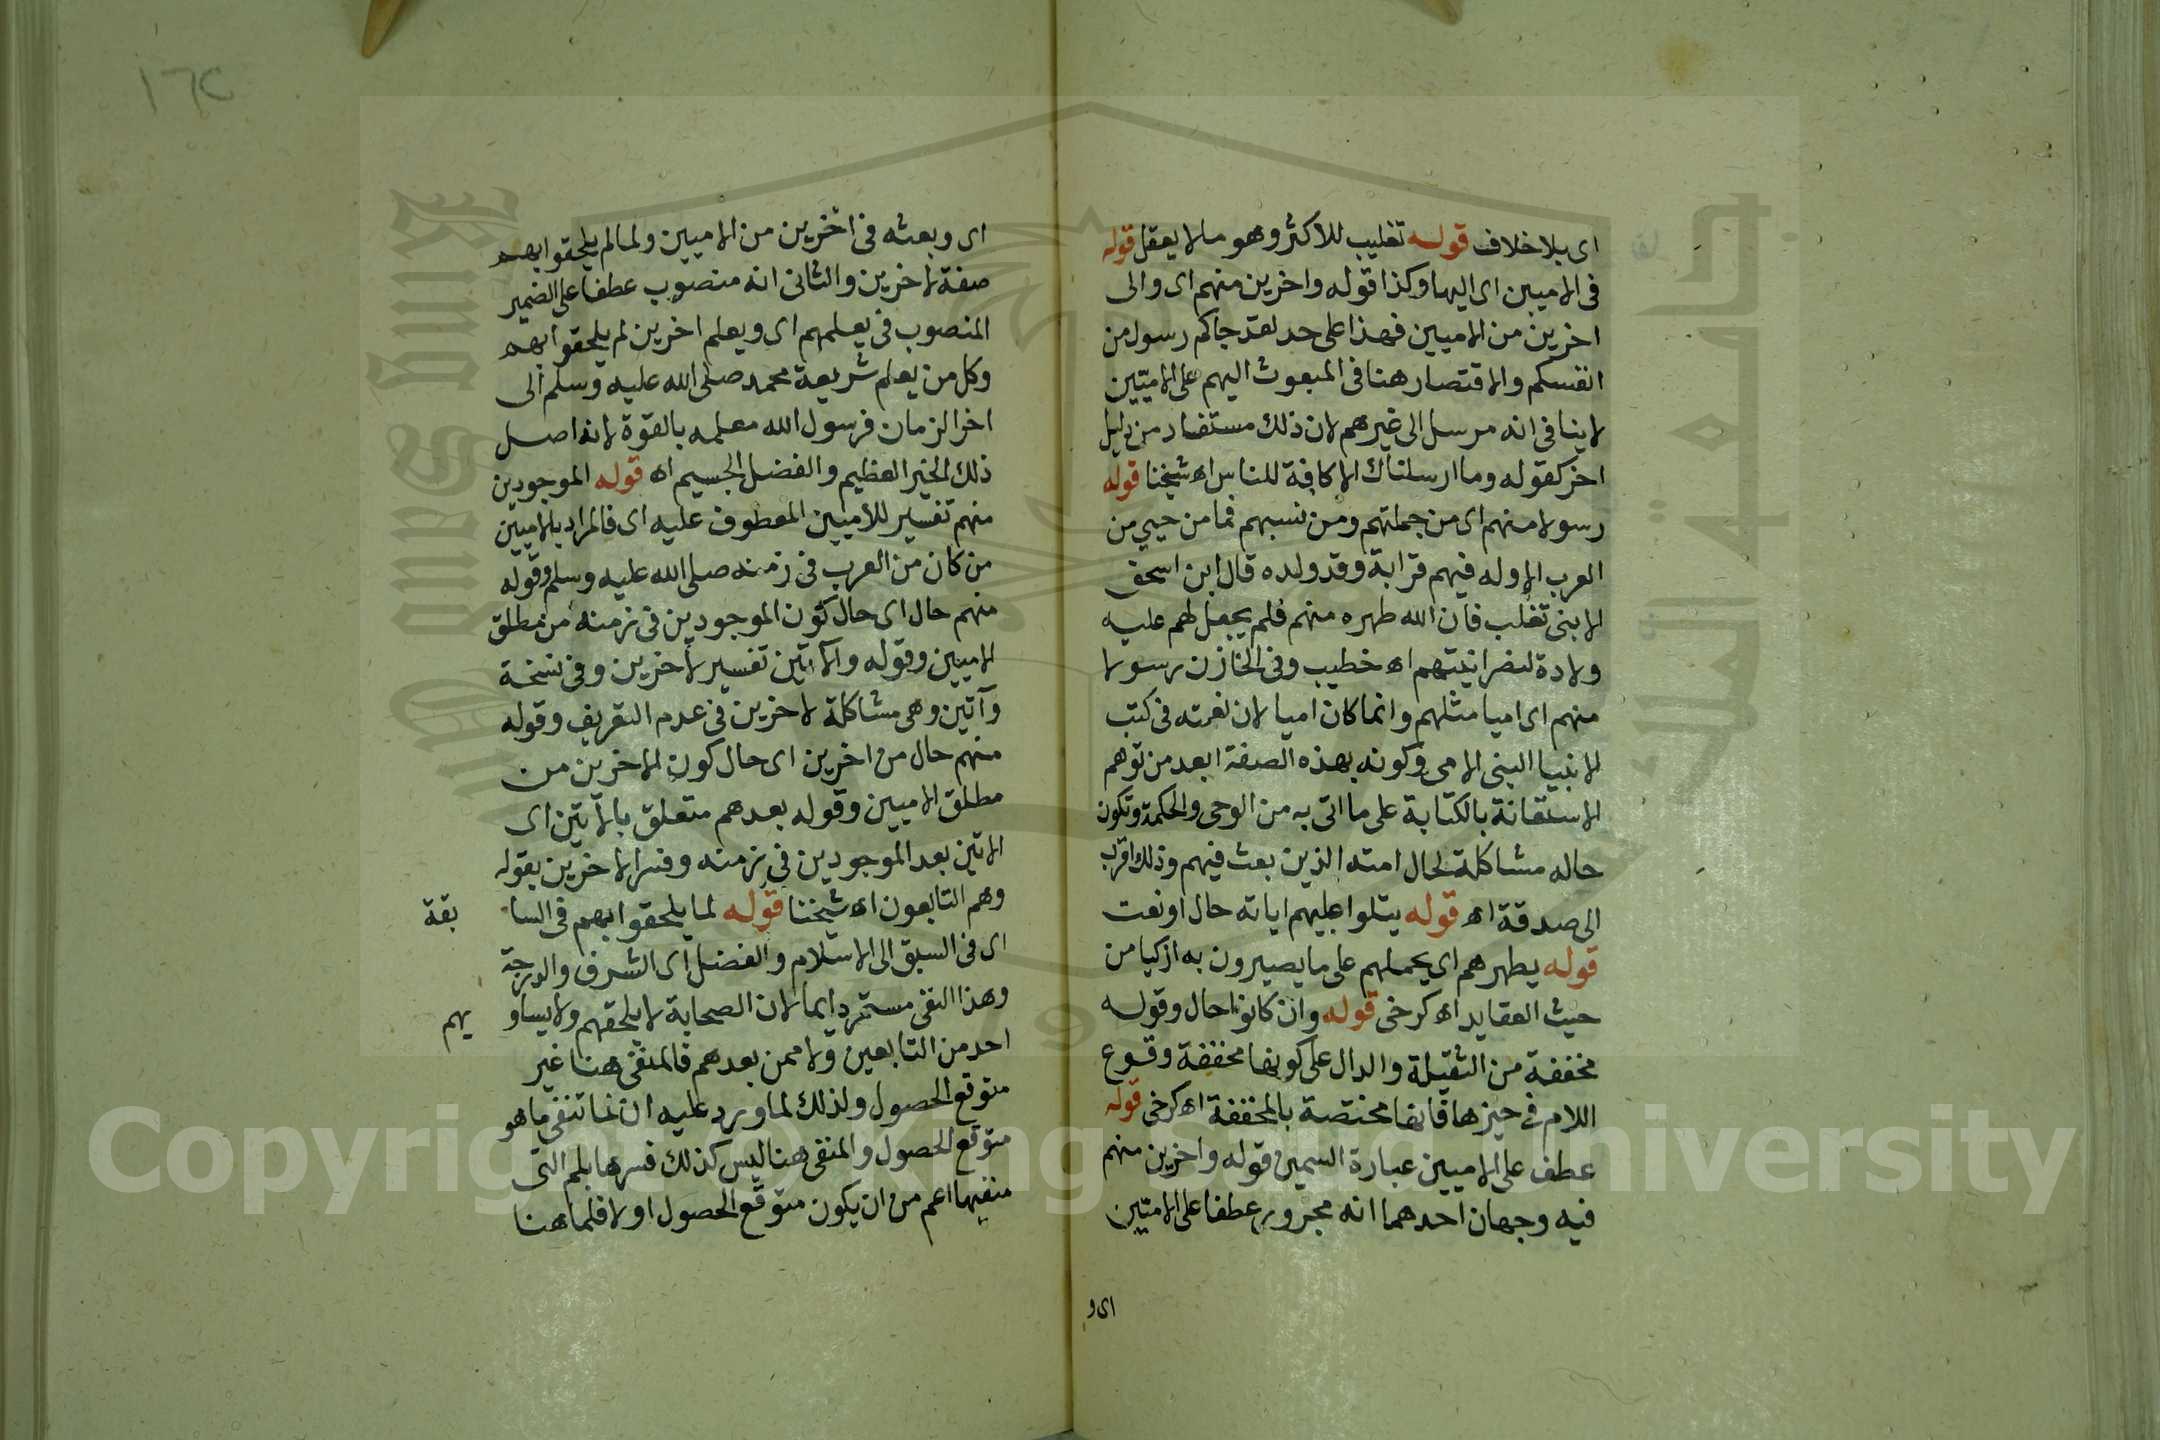 اى بلا خلاف قوله تغليب للاكثر وهو مالا يعقل قوله
فى الاميين اى اليها وكذا قوله واخرين منهم اى والى
اخرين من الاميين فهذا على حد لقد جاكم رسول من
انفسكم والاقتصار هنا فى المبعوث اليهم على الاميين
لا ينافى انه مرسل الى غيرهم لان ذلك مستفاد من دليل
اخر كقوله وما ارسلناك الا كافة للناس اه شيخنا قوله
رسولا منهم اى من جملتهم ومن نسبهم فما من حيي من
العرب الا وله فيهم قرابة وقد ولده قال ابن اسحق
الا بنى تغلب فان الله طهره منهم فلم يجعل لهم عليه
ولادة لنصرانيتهم اه خطيب وفى الخازن رسولا
منهم اى اميا مثلهم وانما كان اميا لان نعته فى كتب
الانبيا النبى الامى وكونه بهذه الصفة ابعد من توهم
الاستعانة بالكتابة على ما اتى به من الوحى والحكمة وتكون
حاله مشاكلة لحال امته الذين بعث فيهم وذلك اقرب
الى صدقه اه قوله يتلوا عليهم اياته حال او نعت
قوله يطهرهم اى يحملهم على ما يصيرون به ازكيا من
حيث العقايد اه كرخى قوله وان كانوا حال وقوله
مخففة من الثقيلة والدال على كونها مخففة وقوع
اللام فى حيزها فانها مختصة بالمخففة اه كرخى قوله
عطف على الاميين عبارة السمين قوله واخرين منهم
فيه وجهان احدهما انه مجرور عطفا على الاميين
اى و
١٦٢
اى وبعثه فى اخرين من الاميين ولما لم يلحقوا بهم
صفة لاخرين والثانى انه منصوب عطفا على الضمير
المنصوب فى يعلمهم اى ويعلم اخرين لم يلحقوا بهم
وكل من يعلم شريعة محمد صلى الله عليه وسلم الى
اخر الزمان فرسول الله معلمه بالقوة لانه اصل
ذلك الخير العظيم والفضل الجسيم اه قوله الموجودين
منهم تفسير للاميين المعطوف عليه اى فالمراد بالاميين
من كان من العرب فى زمنه صلى الله عليه وسلم وقوله
منهم حال اى حال كون الموجودين فى زمنه من مطلق
الاميين وقوله والآتين تفسير لآخرين وفى نسخة
وآتين وهى مشاكلة لاخرين فى عدم التعريف وقوله
منهم حال من اخرين اى حال كون الاخرين من
مطلق الاميين وقوله بعدهم متعلق بالآتين اى
الاتين بعد الموجودين فى زمنه وفسر الاخرين بقوله
وهم التابعون اه شيخنا قوله لما يلحقوا بهم فى السا بقة
اى فى السبق الى الاسلام والفضل اى الشرف والدرجة
وهذا النفى مستمر دايما لان الصحابة لا يلحقهم ولا يساو يهم
احد من التابعين ولا ممن بعدهم فالمنفى هنا غير
متوقع الحصول ولذلك لما ورد عليه ان لما تنفى ما هو
متوقع الحصول والمنفى هنا ليس كذلك فسرها بلم التى
منفيها اعم من ان يكون متوقع الحصول او لا فلما هنا
جامعة الملك سعود
King Saud University
1957
Copyright © King Saud University